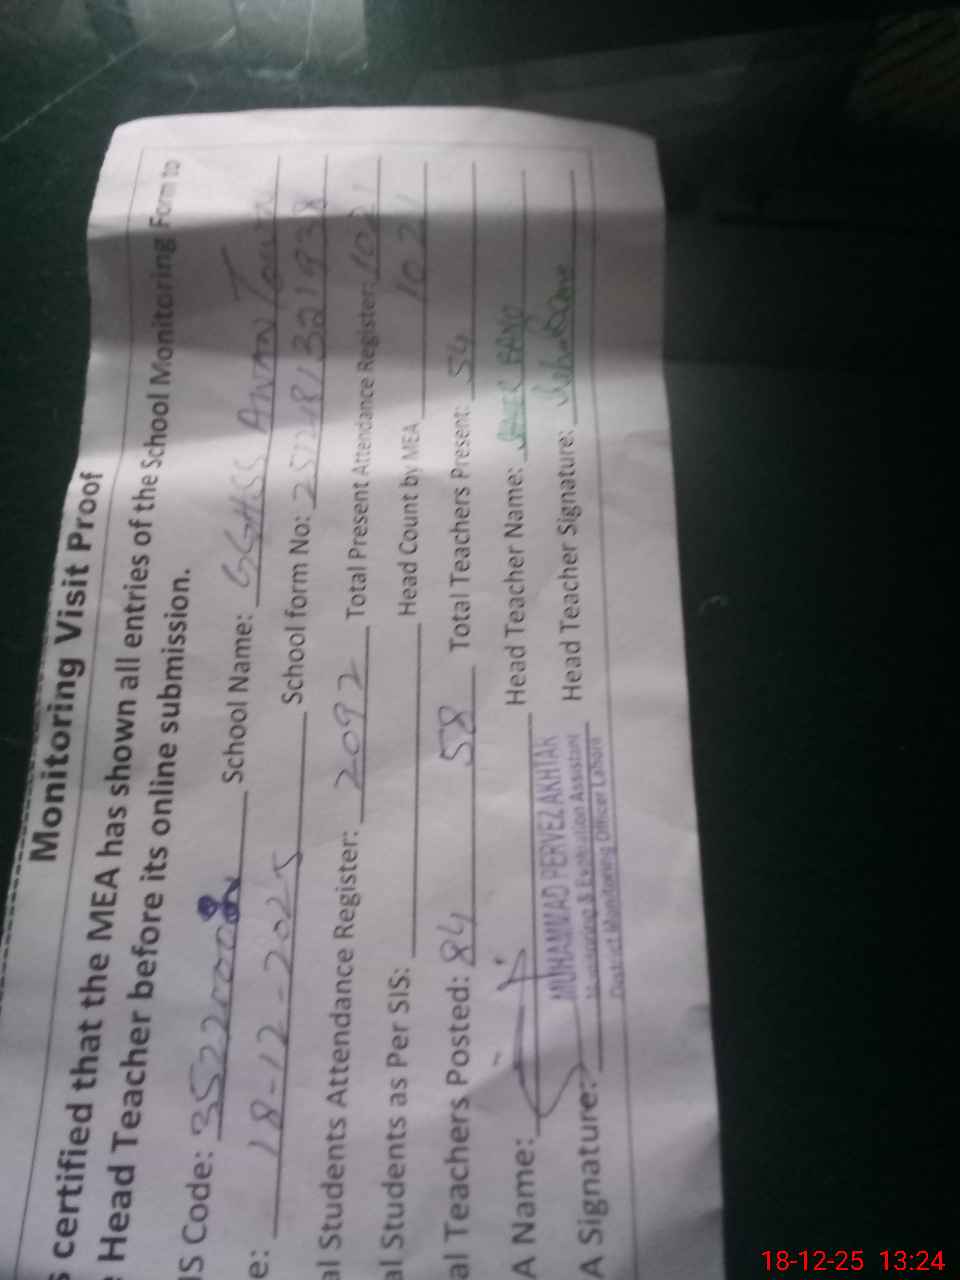 Monitoring Visit Proof
certified that the MEA has shown all entries of the School Monitoring Form to
Head Teacher before its online submission.
IS Code: School Name: GGHSS Aman Town
e: 18-12-2025 School form No:
al Students Attendance Register: 2092 Total Present Attendance Register: 1021
al Students as Per SIS: Head Count by MEA 1021
al Teachers Posted: 84 58 Total Teachers Present: 54
A Name: Head Teacher Name:
MUHAMMAD PERVEZ AKHTAR
A Signature: Head Teacher Signature:
Monitoring & Evaluation Assistant
District Monitoring Officer Lahore
18-12-25 13:24